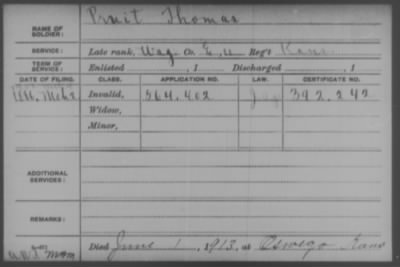 NAME OF SOLDIER: Pruit Thomas
SERVICE: Late rank, Wag Co E, 11 Reg't Kans
TERM OF SERVICE: Enlisted , 1 Discharged , 1
DATE OF FILING. CLASS. APPLICATION NO. LAW. CERTIFICATE NO.
Invalid, 564.402 342.242
Widow,
Minor,
ADDITIONAL SERVICES:
REMARKS:
Died June 1, 1913, at Oswego Kans